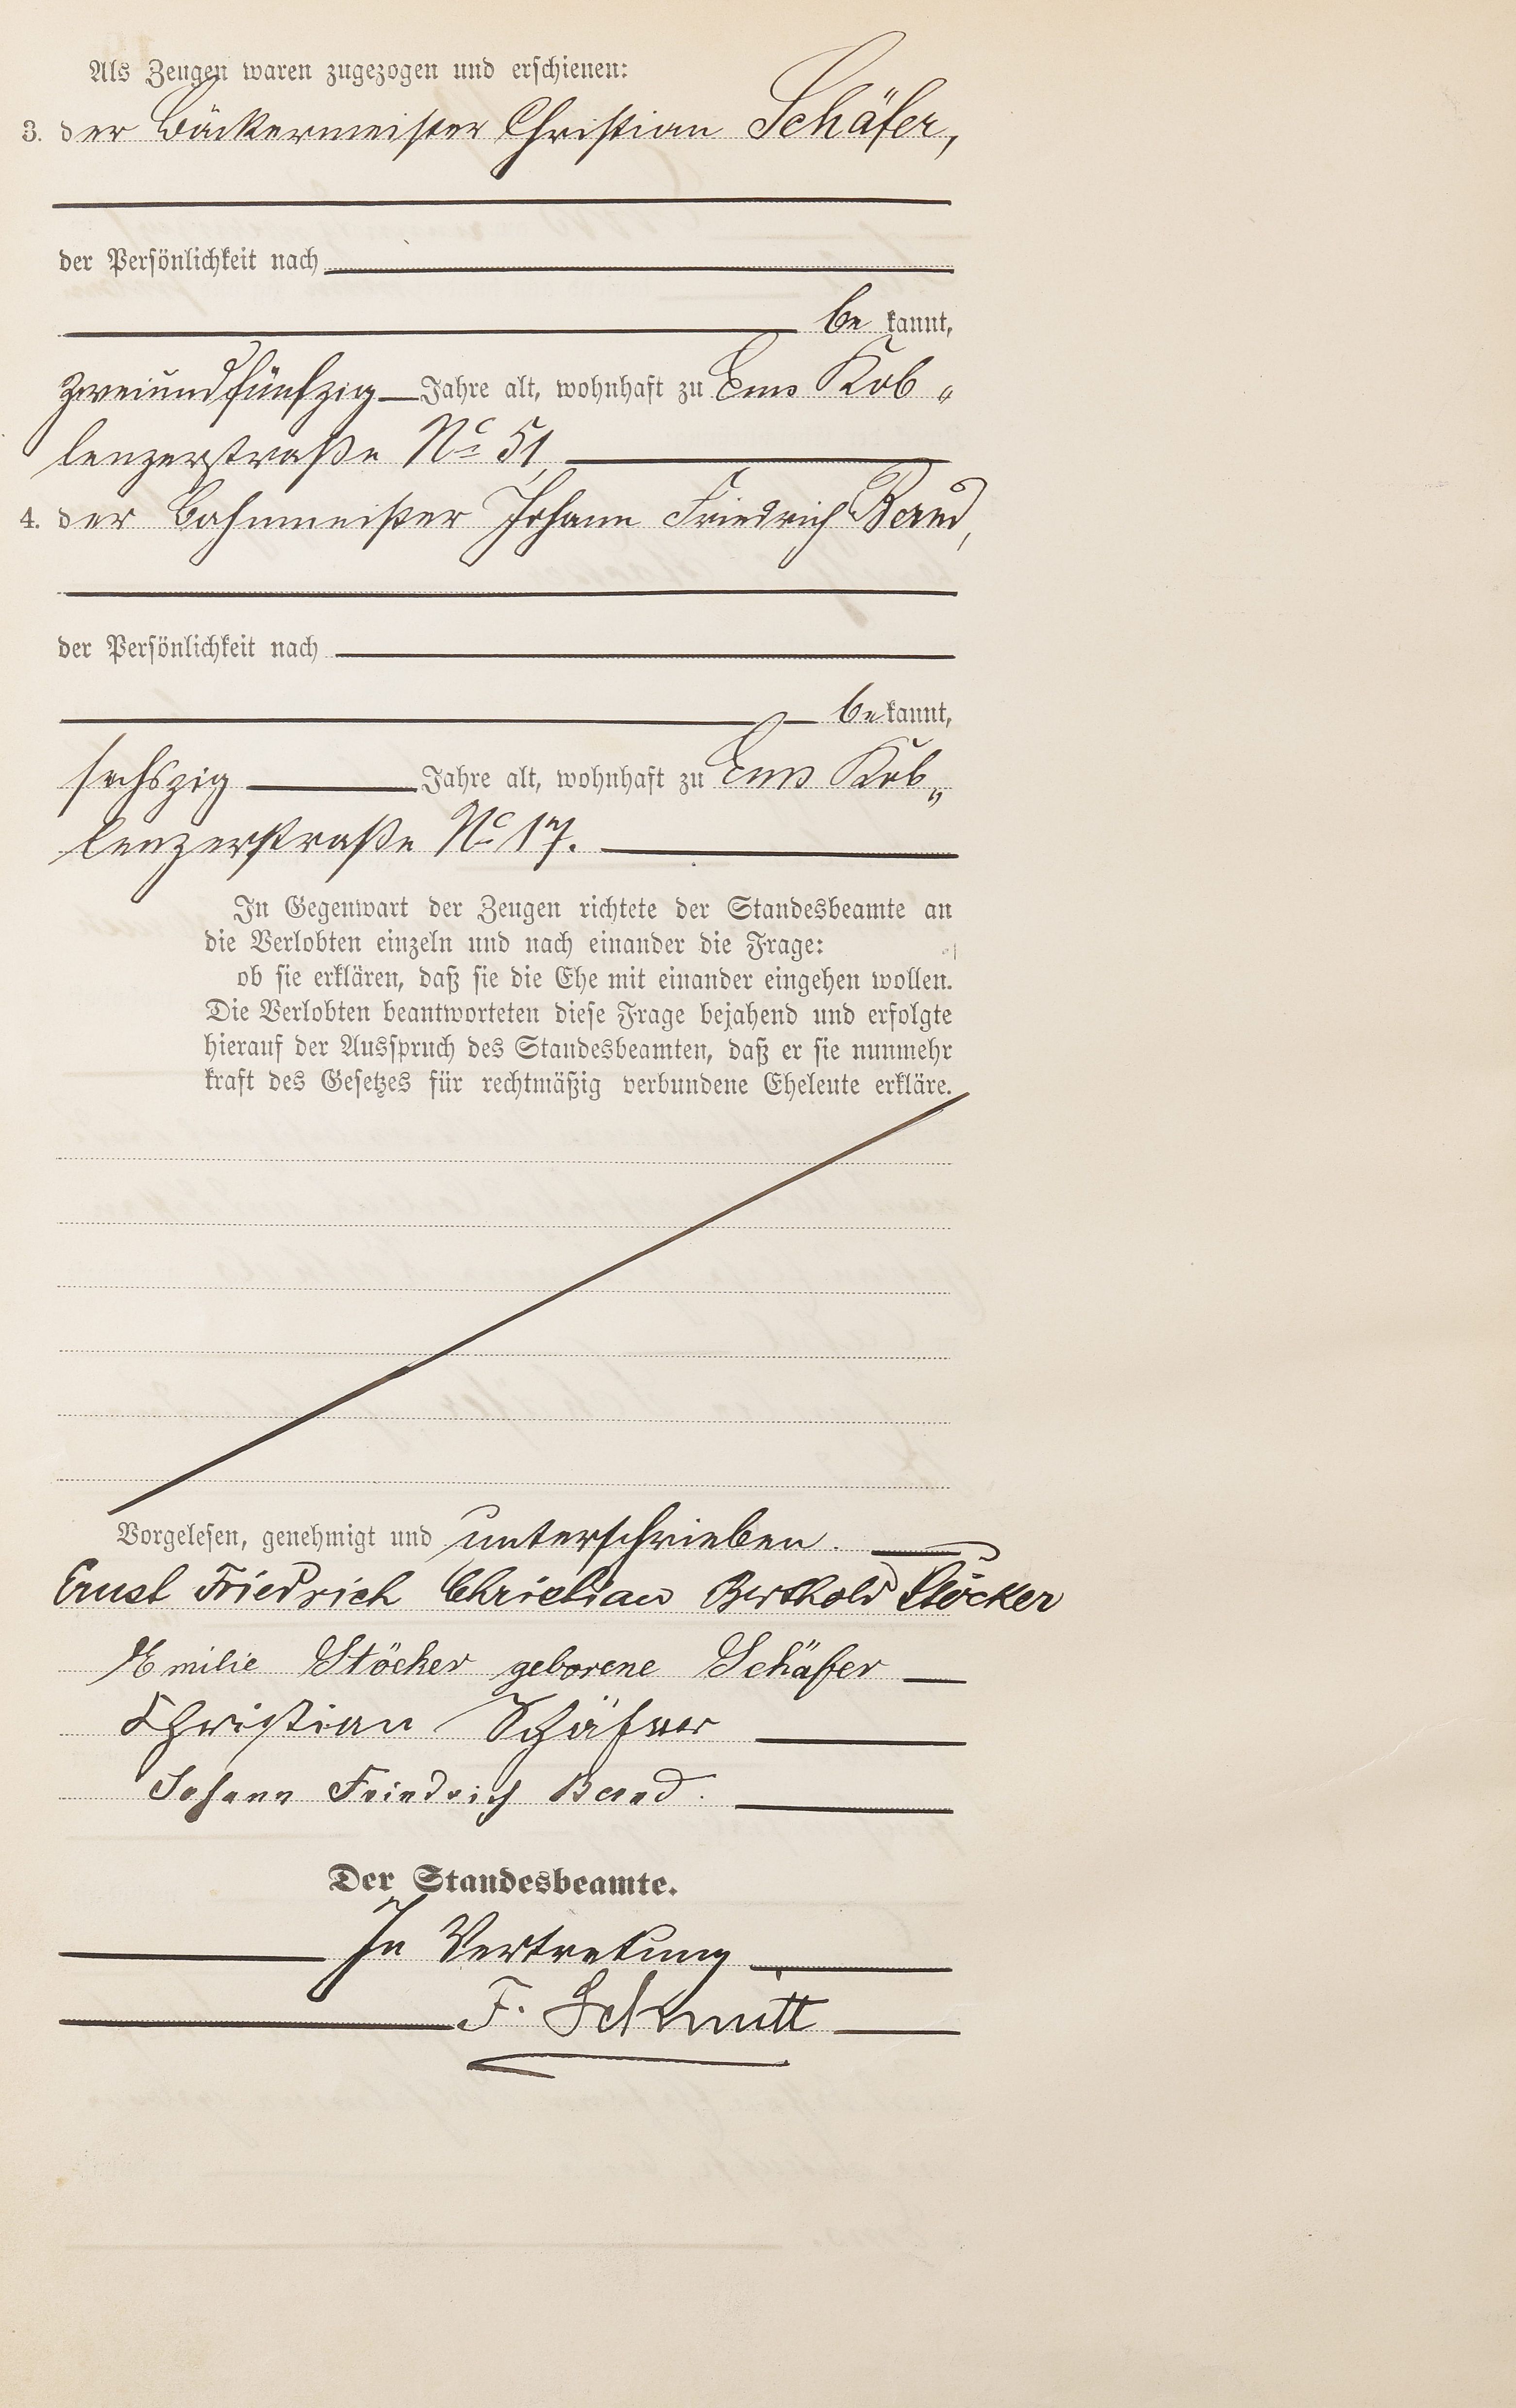 Als Zeugen waren zugezogen und erschienen:
3. der Bäckermeister Christian Schäfer,
der Persönlichkeit nach
be kannt,
zweiundfünfzig Jahre alt, wohnhaft zu Ems Kob„
lenzerstraße No 51,
4. der Bahnmeister Johann Friedrich Bernd,
der Persönlichkeit nach
be kannt,
sechszig Jahre alt, wohnhaft zu Ems Kob„
lenzerstraße No 17.
In Gegenwart der Zeugen richtete der Standesbeamte an
die Verlobten einzeln und nach einander die Frage:
ob sie erklären, daß sie die Ehe mit einander eingehen wollen.
Die Verlobten beantworteten diese Frage bejahend und erfolgte
hierauf der Ausspruch des Standesbeamten, daß er sie nunmehr
kraft des Gesetzes für rechtmäßig verbundene Eheleute erkläre.
Vorgelesen, genehmigt und unterschrieben.
Ernst Friedrich Christian Berthold Stöcker
Emilie Stöcker geborene Schäfer
Christian Schäfer
Johann Friedrich Bernd.
Der Standesbeamte.
In Vertretung
F. Schmitt